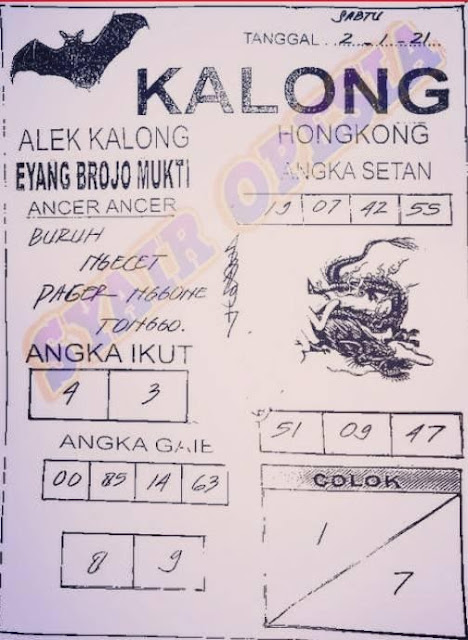 SABTU
TANGGAL . . 2 - 1 - 21
KALONG
ALEK KALONG
EYANG BROJO MUKTI
ANCER ANCER
BURUH
NGECET
PAGER NGGONE
TONGGO.
HONGKONG
ANGKA SETAN
19 07 42 55
ANGKA IKUT
4 3
51 09 47
ANGKA GAIE
00 85 14 63
8 9
COLOK
1
7
SYAIR OPESIA